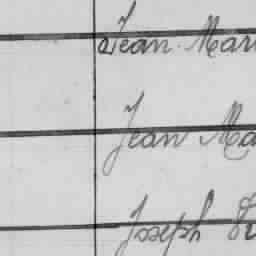 Jean Mar
Jean Ma
Joseph